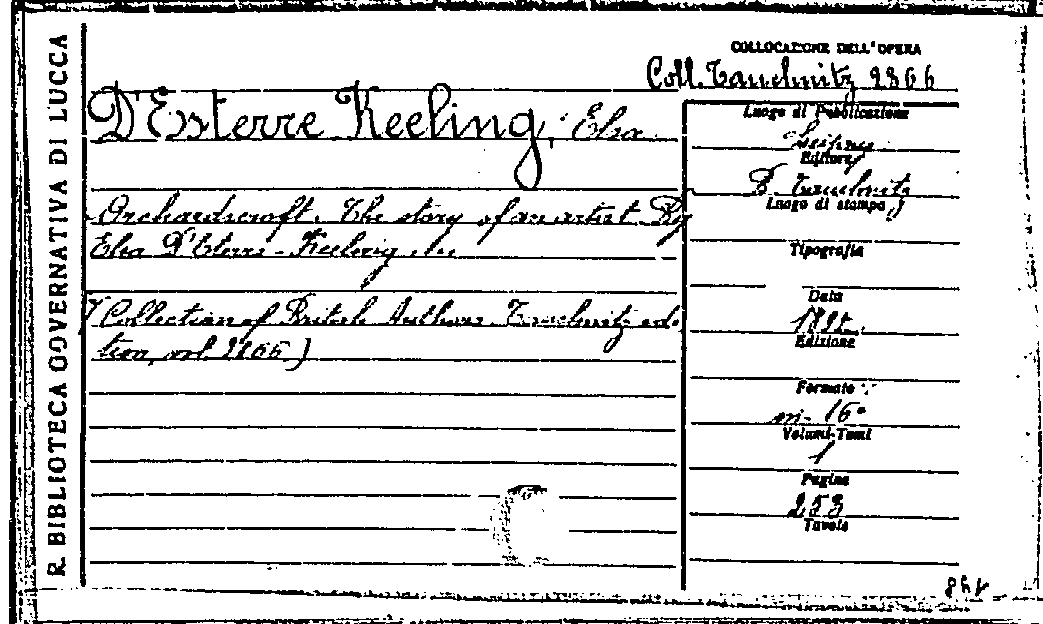 R. BIBLIOTECA GOVERNATIVA DI LUCCA
COLLOCAZIONE DELL'OPERA
Coll. Tauchnitz 2866
D'Esterre Keeling, Elsa
Orchardscroft. The story of an artist. By
Elsa D'Esterre-Keeling
(Collection of British Authors Tauchnitz edi-
tion, vol. 2866.)
Luogo di Pubblicazione
Leipzig
Editore
B. Tauchnitz
Luogo di stampa
Tipografia
Data
1892
Edizione
Formato
in-16°
Volumi-Tomi
1
Pagine
253
Tavole